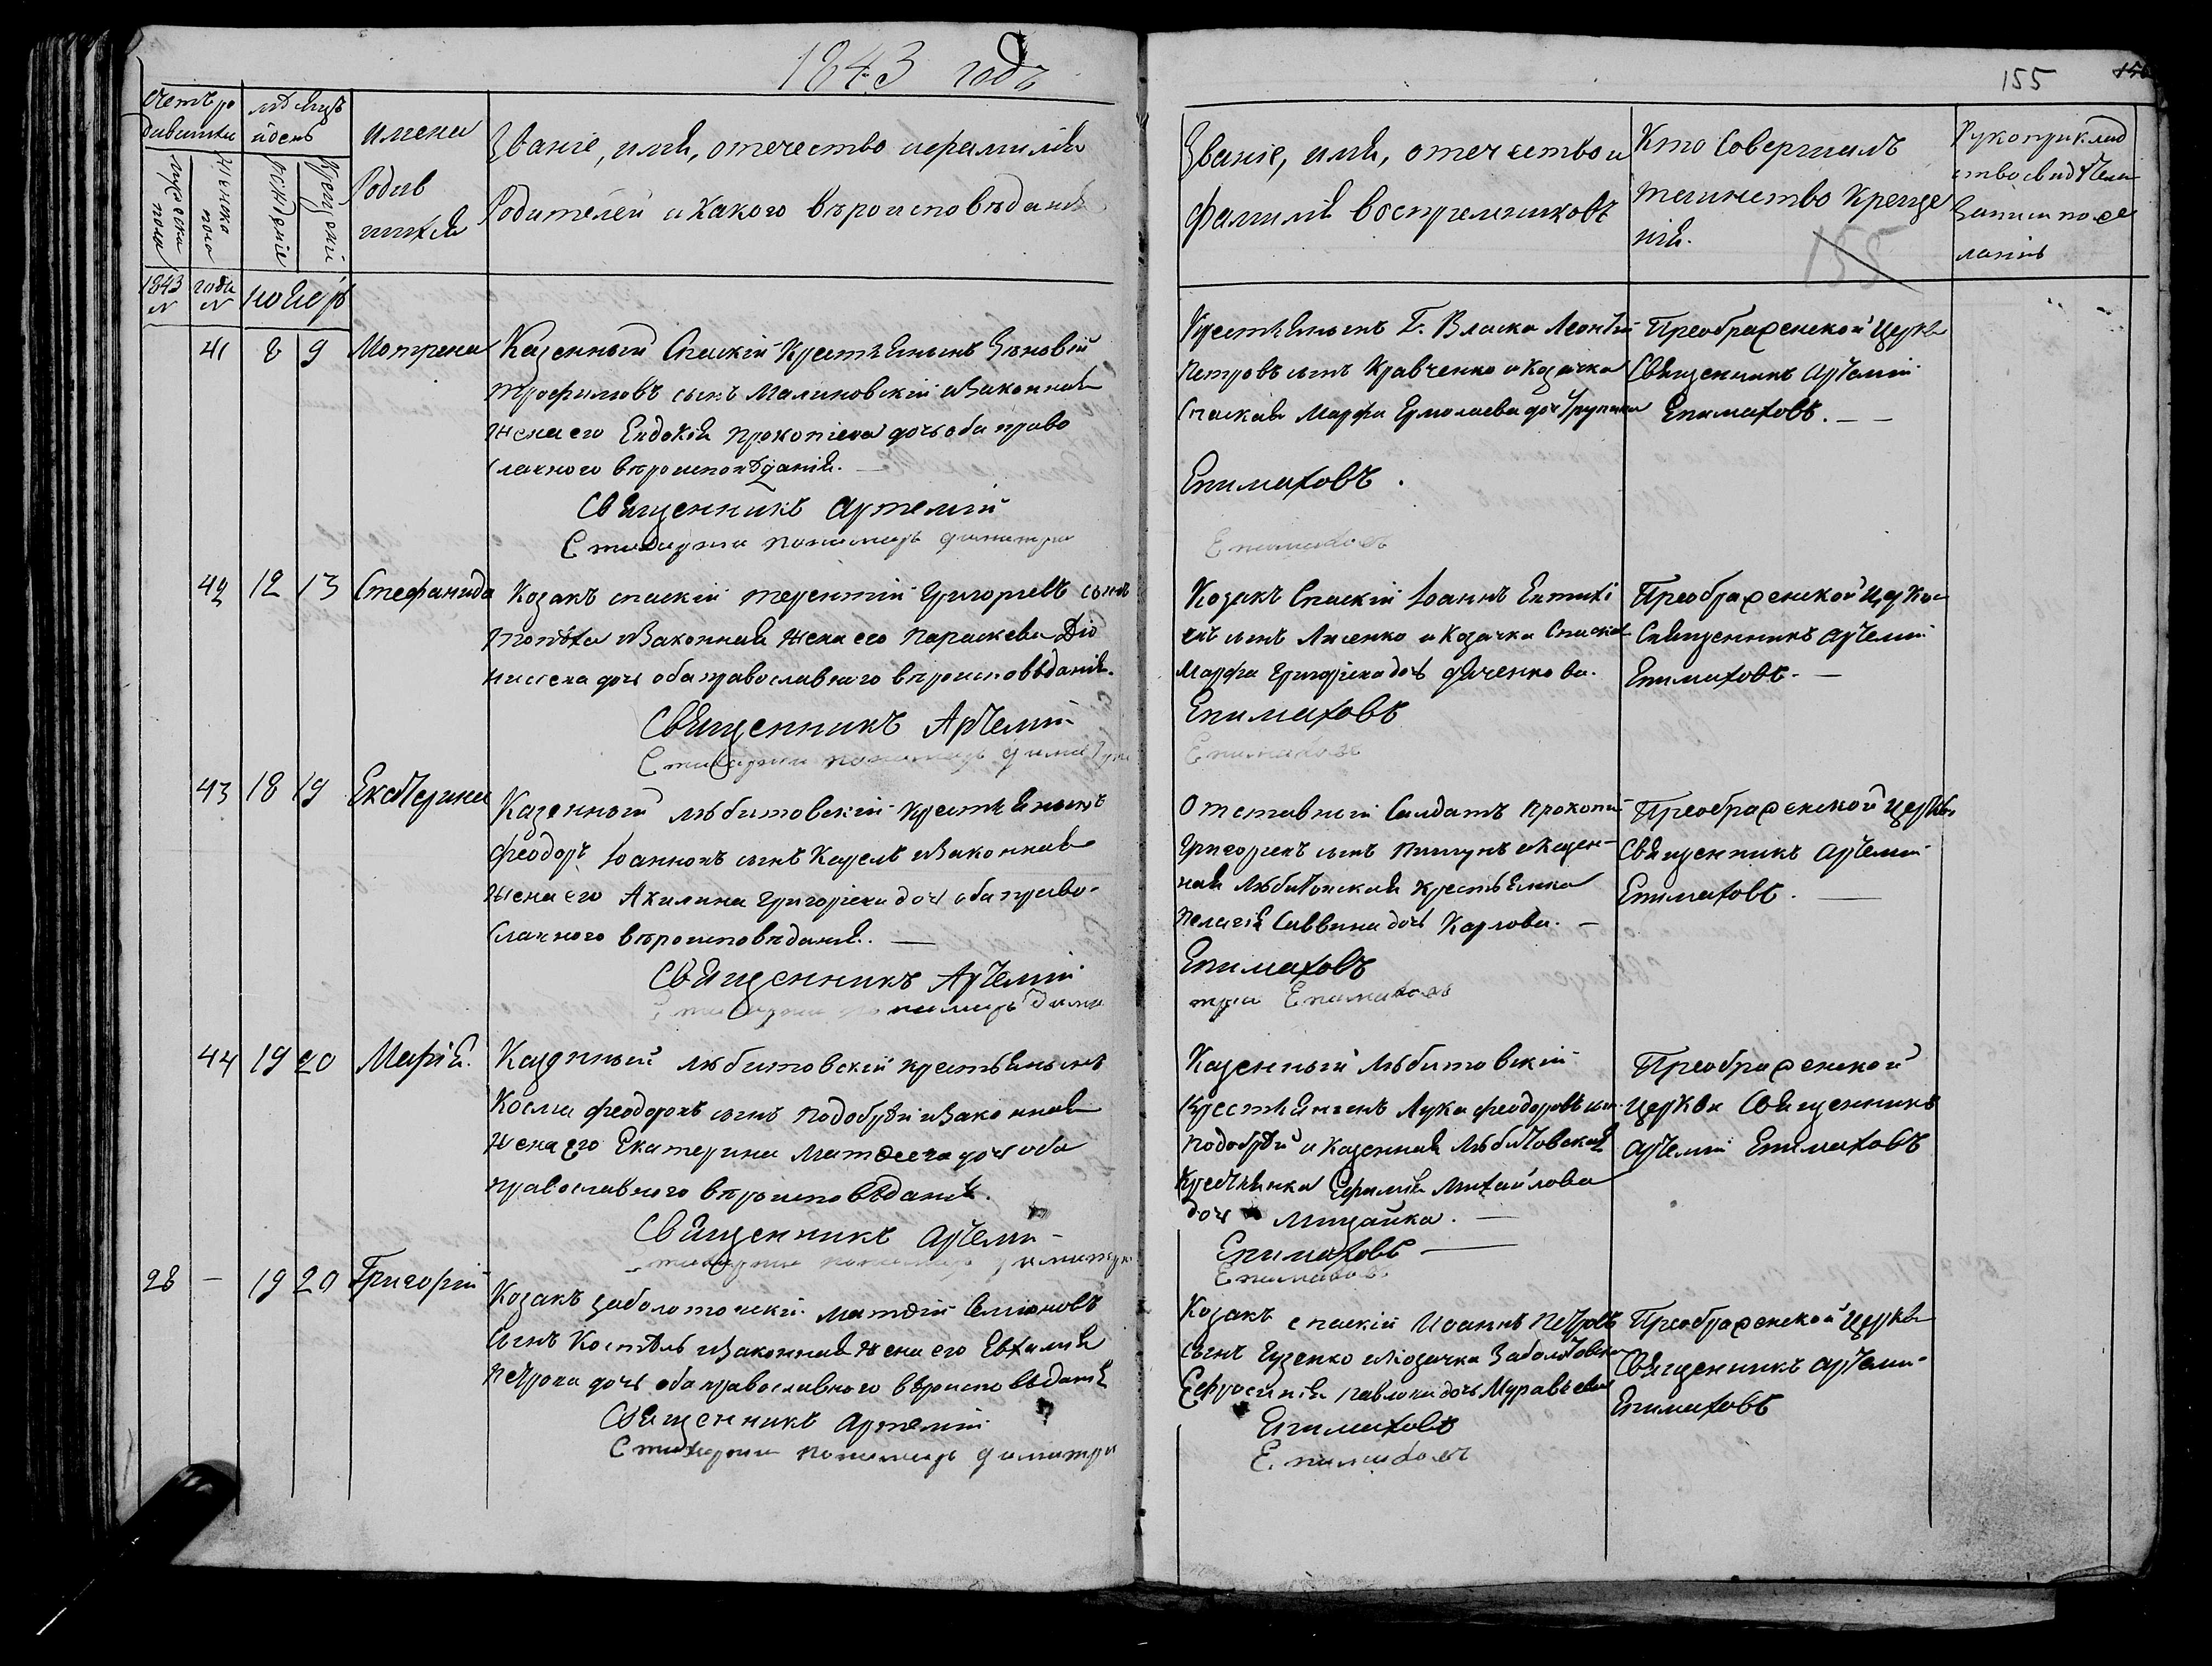 1843 годъ
155
Счетъ ро
дившихся
мѣсяцъ
и день
мужеска
пола
женско
пола
рожденіе
крещеніе
имена
Родив
шихся
Званіе, имя, отечество и фамилія
Родителей и какого вѣроисповѣданія
Званіе, имя, отечество и
фамилія воспремниковъ
Кто совершалъ
таинство Креще
нія.
155
Рукоприклад
ство свидѣтеля
записи по же
ланію
1843
года
№
№
ноябрь
41
8
9
Мотрена
Казенный Спаскій Крестьянинъ Зѣновій
Трофимовъ сынъ Малиновскій и законная
жена его Евдокія Прокопіева дочь оба право
славного вѣроисповѣданія.
Священникъ Артемій
Стихарни пономарь димитри
Крестьянинъ Г. Власка Леонтій
Петровъ сынъ Кравченко и Козачка
Спаская Марфа Ермолаева доч
Епимаховъ.
Епимаховъ
Преображенской Церкви
Священникъ Артемій
Епимаховъ.
42
12
13
Стефанида
Козакъ спаскій Терентій Григорьевъ сынъ
и законная жена его Параскева Діо
нисіева дочь оба православного вѣроисповѣданія.
Священникъ Артемій
Стихарни пономарь димитри
Козакъ Спаскій Іоаннъ Евтихі
евъ сынъ Лисенко и Козачка Спаская
Марфа Григоріева дочь Дяченкова.
Епимаховъ
Епимаховъ
Преображенской Церкви
Священникъ Артемій
Епимаховъ.
43
18
19
Екатерина
Казенный любитовскій крестьянинъ
Феодоръ Іоанновъ сынъ Карелъ и законная
жена его Акилина Григоріева дочь оба право-
славного вѣроисповѣданія.
Священникъ Артемій
Стихарни пономарь дими
Отставный Салдатъ Прокопій
Григоріевъ сынъ Пишунъ и казен-
ная Любитовская крестьянка
Пелагія Саввина дочь Карлова.
Епимаховъ
три Епимаховъ
Преображенской Церкви
Священникъ Артемій
Епимаховъ.
44
19
20
Марія.
Казенный любитовскій крестьянинъ
Косма Феодоровъ сынъ Подобѣй и законная
жена его Екатерина Матвеева дочь оба
православного вѣроисповѣданія.
Священникъ Артемій
Стихарни пономарь димитри
Казенный Любитовскій
Крестьянинъ Лука Феодоровъ сын.
и казенная Любитовская
Крестьянка Ефимія Михайлова
дочь Мицайка.
Епимаховъ
Епимаховъ
Преображенской
Церкви Священникъ
Артемій Епимаховъ
28
—
19
20
Григорій
Козакъ заболотовскій Матвій Семіоновъ
сынъ Костѣль и законная жена его Евхимія
Петрова дочь оба православного вѣроисповѣданія
Священникъ Артемій
Стихарни пономарь димитри
Козакъ спаскій Иоаннъ Петровъ
сынъ Гузенко и козачка Заболотовска
Ефросинія Павлова дочь Муравьева
Епимаховъ
Епимаховъ
Преображенской Церкви
Священникъ Артемій
Епимаховъ